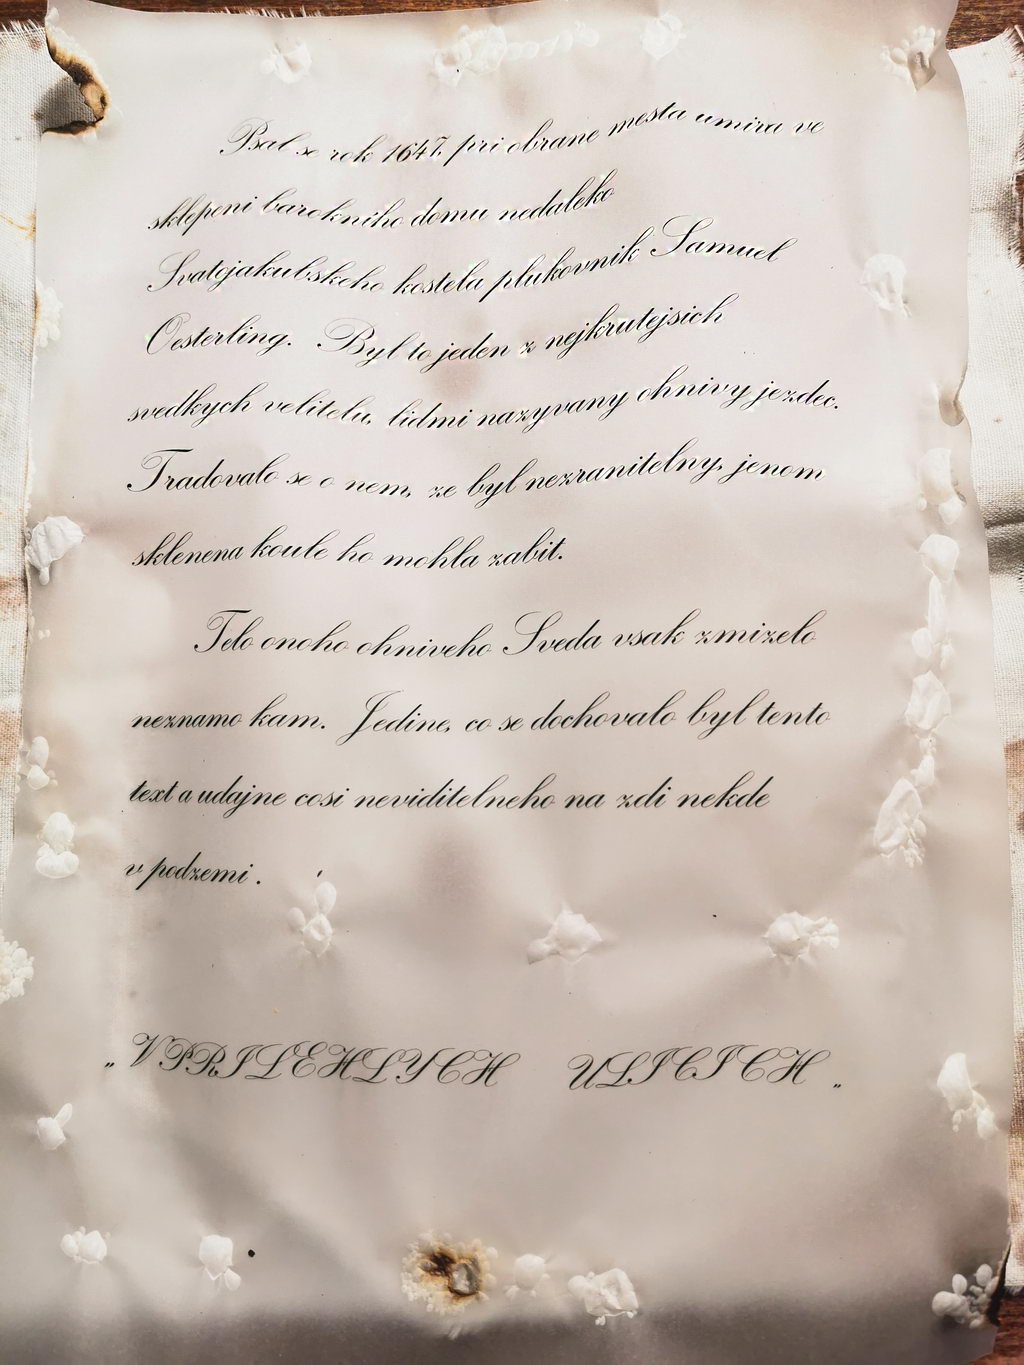 Psal se rok 1647, pri obrane mesta umira ve
sklepeni barokniho domu nedaleko
Svatojakubskeho kostela plukovnik Samuel
Oesterling. Byl to jeden z nejkrutejsich
svedkych velitelu, lidmi nazyvany ohnivy jezdec.
Tradovalo se o nem, ze byl nezranitelny, jenom
sklenena koule ho mohla zabit.
Telo onoho ohniveho Sveda vsak zmizelo
neznamo kam. Jedine, co se dochovalo byl tento
text a udajne cosi neviditelneho na zdi nekde
v podzemi.
„VPRILEHLYCH ULICICH„